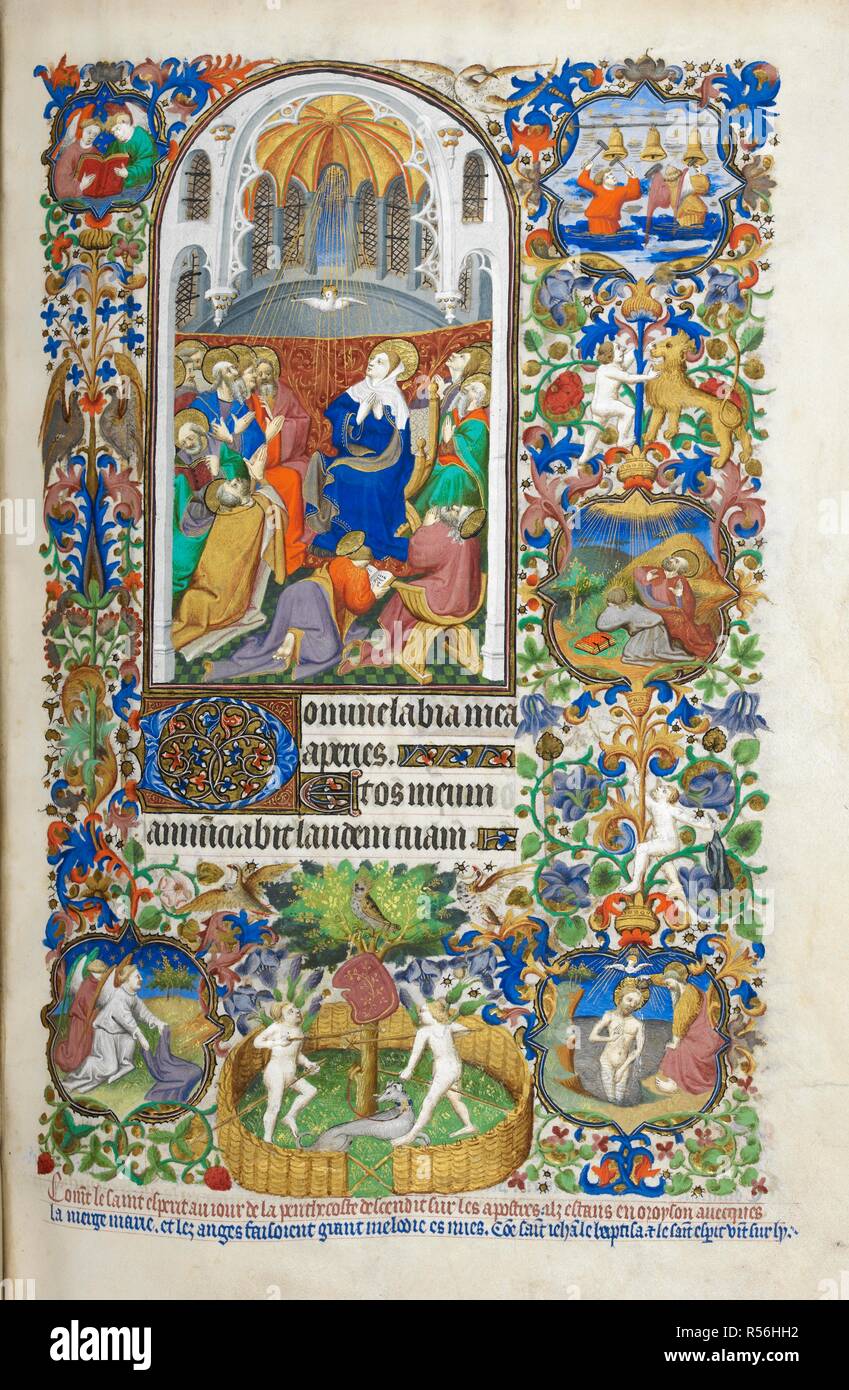 Domine labia mea
aperies.
Et os meum
annunciabit laudem tuam.
Com̄t le saint esperit au iour de la penthecoste descendit sur les apostres. ilz estans en oroyson avecques
la vierge marie. et lez anges faisoient grant melodie es nues. Cōe saīt iehā le baptisa & le saīt esperit vīt sur ly.
alamy
Image ID: R56HH2
www.alamy.com